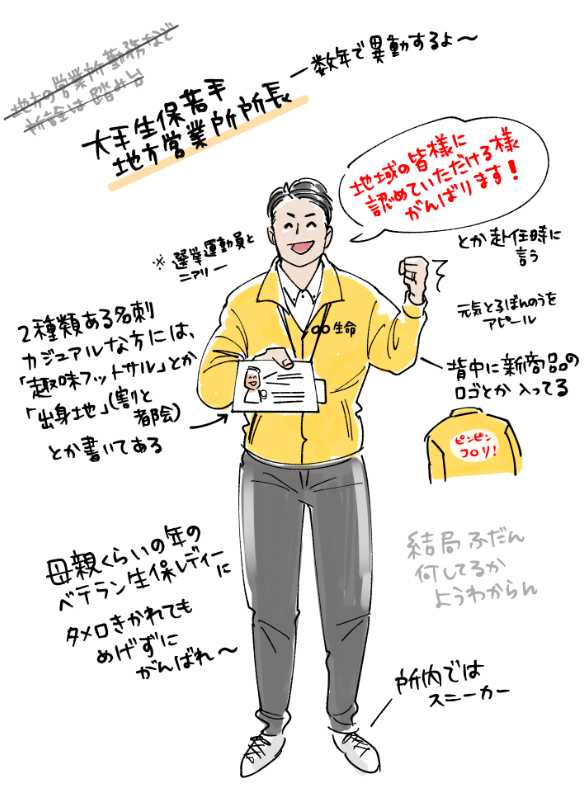 地方の営業所勤務など
所詮は踏み台
大手生保若手
地方営業所所長
数年で異動するよ〜
地域の皆様に
認めていただける様
がんばります!
とか赴任時に
言う
※選挙運動員と
ニアリー
元気とさぼんのうを
アピール
〇〇生命
2種類ある名刺
カジュアルな方には、
「趣味フットサル」とか
「出身地」(割と
都会)
とか書いてある
背中に新商品の
ロゴとか入ってる
ピンピン
コロリ!
母親くらいの年の
ベテラン生保レディーに
タメ口きかれても
めげずに
がんばれ〜
結局ふだん
何してるか
ようわからん
所内では
スニーカー